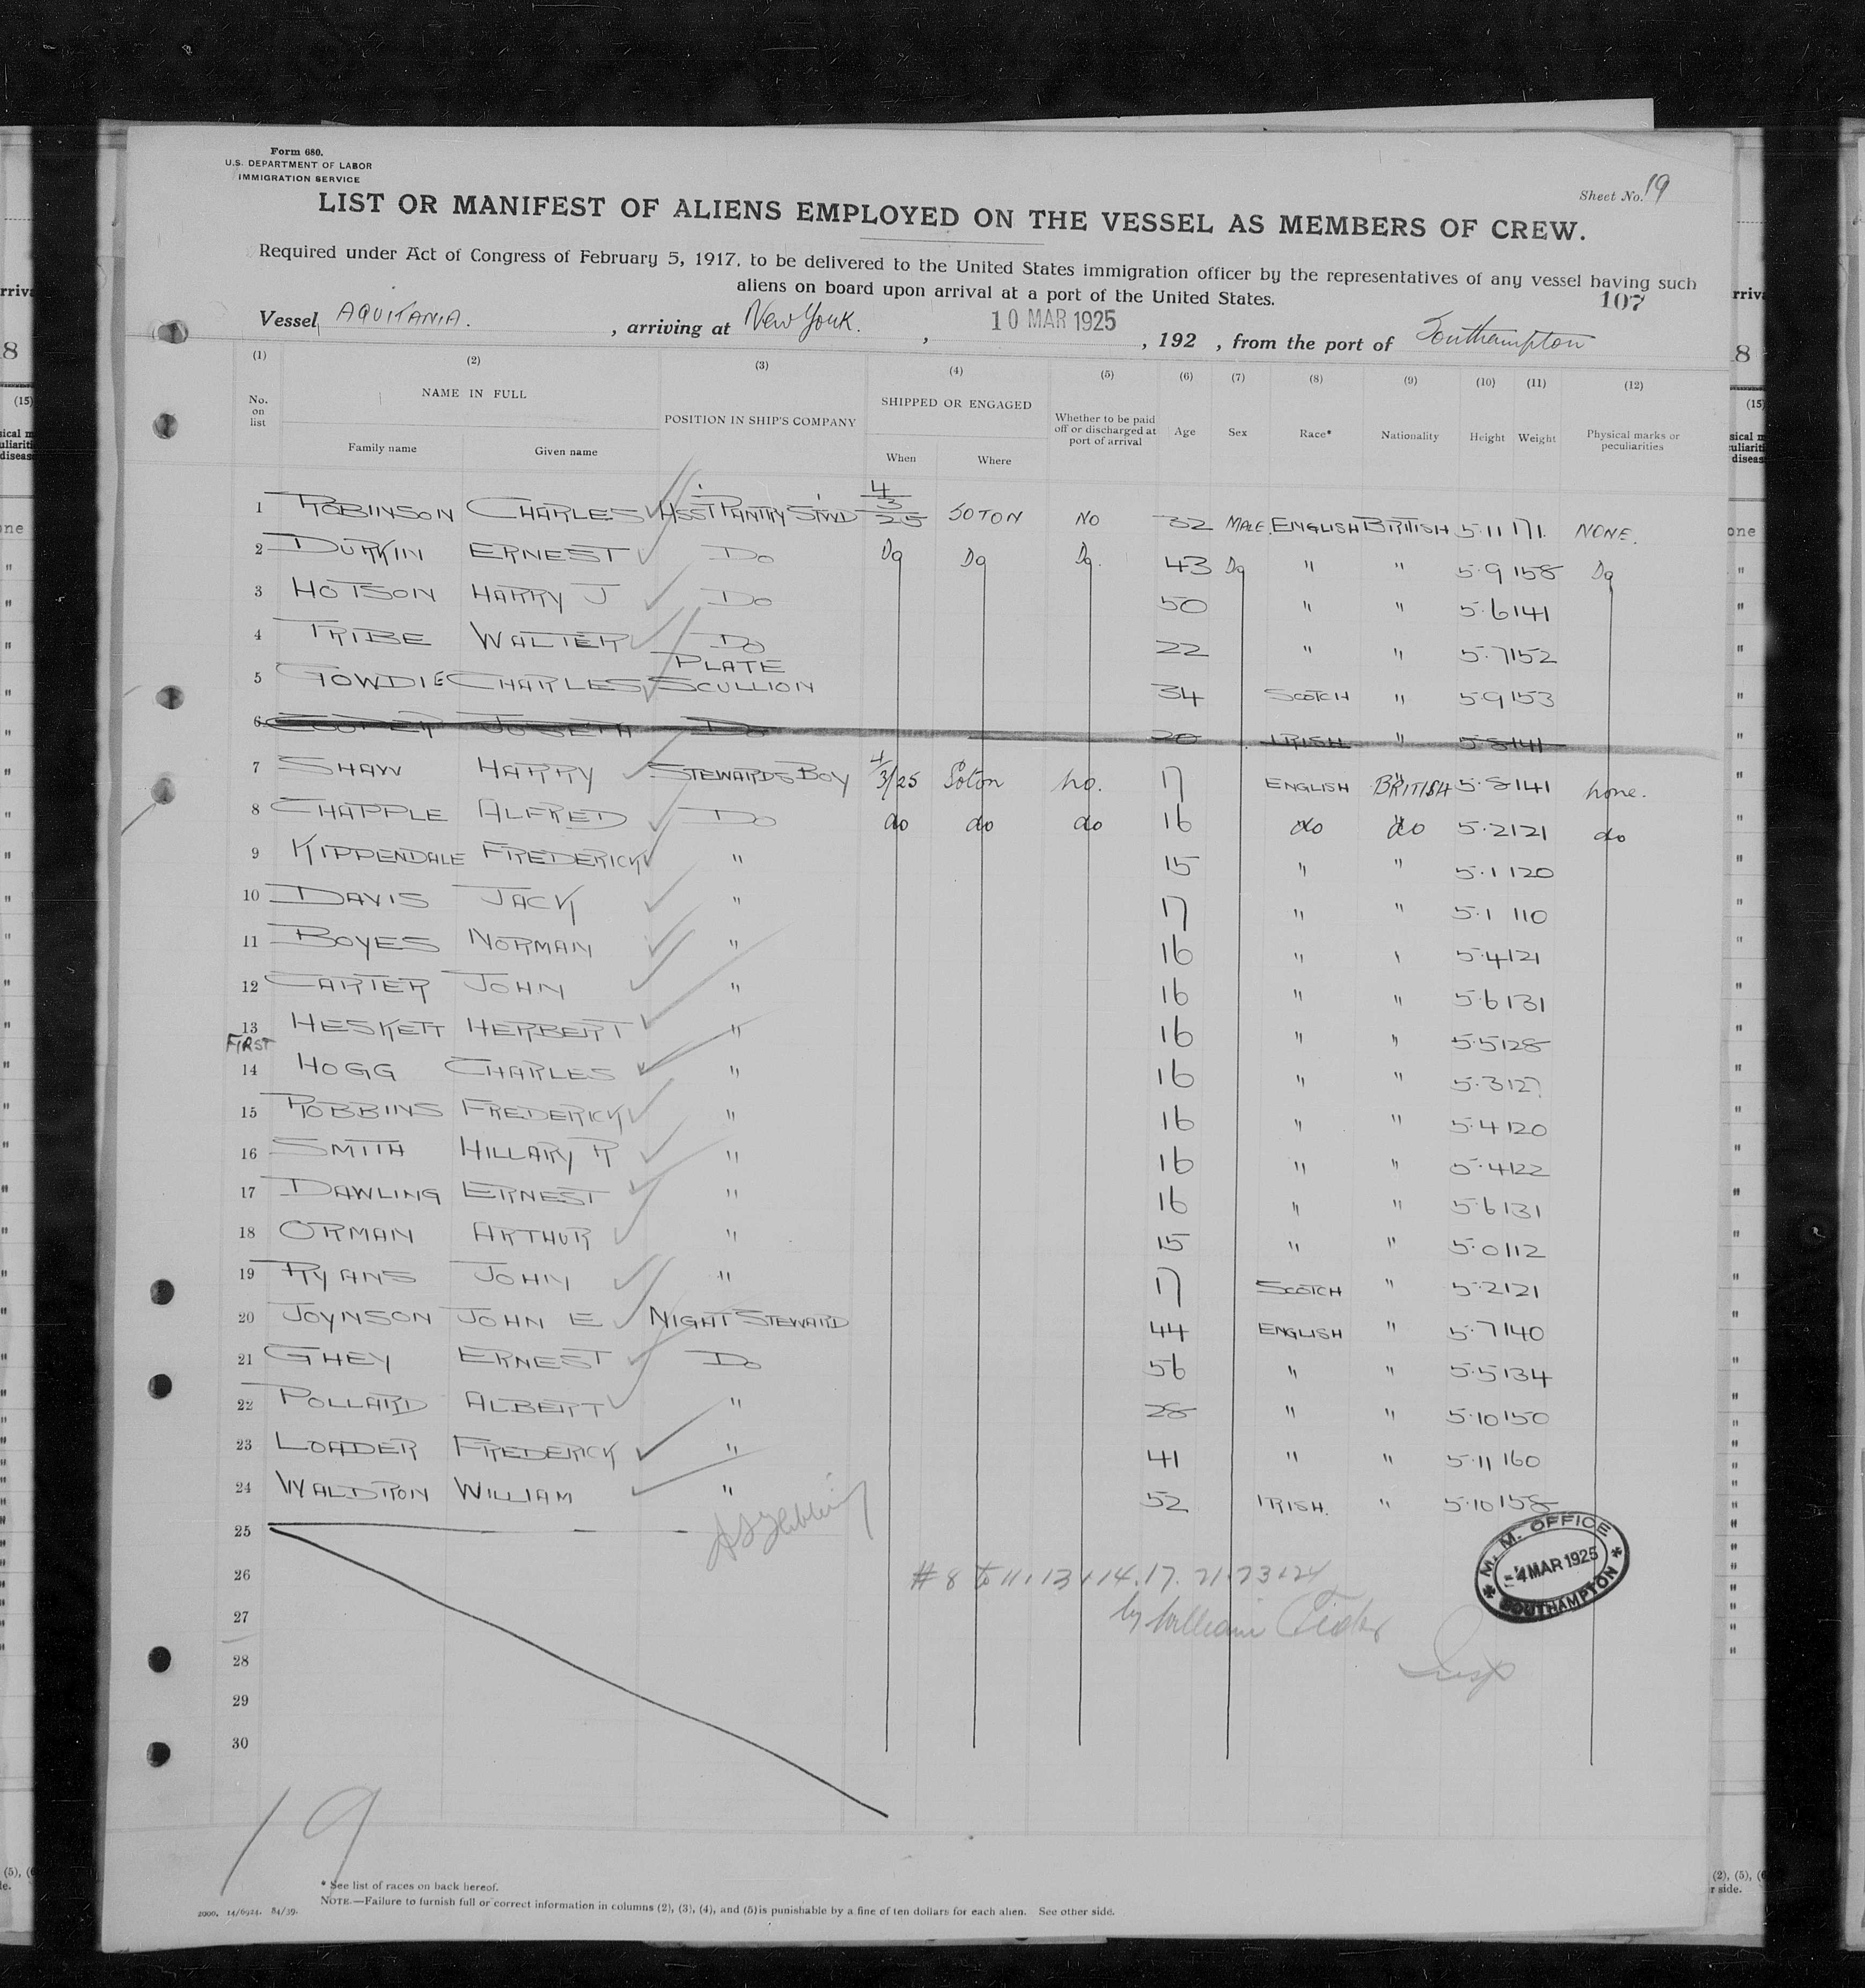 Form 680.
U.S. DEPARTMENT OF LABOR
IMMIGRATION SERVICE
Sheet No. 19
LIST OR MANIFEST OF ALIENS EMPLOYED ON THE VESSEL AS MEMBERS OF CREW.
Required under Act of Congress of February 5, 1917, to be delivered to the United States immigration officer by the representatives of any vessel having such
aliens on board upon arrival at a port of the United States.
107
Vessel AQUITANIA. , arriving at New York. , 10 MAR 1925 , 192 , from the port of Southampton
(1) (2) (3) (4) (5) (6) (7) (8) (9) (10) (11) (12)
No. on list NAME IN FULL POSITION IN SHIP'S COMPANY SHIPPED OR ENGAGED Whether to be paid off or discharged at port of arrival Age Sex Race* Nationality Height Weight Physical marks or peculiarities
Family name Given name When Where
1 ROBINSON CHARLES ASST PANTRY STWD 4/3/25 SOTON NO 32 MALE. ENGLISH BRITISH 5·11 171. NONE.
2 DURKIN ERNEST DO Do Do Do. 43 Do " " 5·9 158 Do
3 HOTSON HARRY J DO 50 " " 5·6 141
4 TRIBE WALTER DO 22 " " 5·7 152 "
5 GOWDIE CHARLES PLATE SCULLION 34 SCOTCH " 5·9 153 "
6 JOSEPH DO 20 IRISH " 5·8 141 "
7 SHAW HARRY STEWARDS BOY 4/3/25 Soton no. 17 ENGLISH BRITISH 5·8 141 none.
8 CHAPPLE ALFRED DO do do do 16 do do 5·2 121 do
9 KIPPENDALE FREDERICK " 15 " " 5·1 120
10 DAVIS JACK " 17 " " 5·1 110
11 BOYES NORMAN " 16 " " 5·4 121
12 CARTER JOHN " 16 " " 5·6 131
13 HESKETT HERBERT " 16 " " 5·5 128
FIRST
14 HOGG CHARLES " 16 " " 5·3 127
15 ROBBINS FREDERICK " 16 " " 5·4 120
16 SMITH HILLARY R " 16 " " 5·4 122
17 DAWLING ERNEST " 16 " " 5·6 131
18 ORMAN ARTHUR " 15 " " 5·0 112
19 RYANS JOHN " 17 SCOTCH " 5·2 121
20 JOYNSON JOHN E NIGHT STEWARD 44 ENGLISH " 5·7 140
21 GHEY ERNEST DO 56 " " 5·5 134
22 POLLARD ALBERT " 28 " " 5·10 150
23 LOADER FREDERICK " 41 " " 5·11 160
24 WALDRON WILLIAM " 52 IRISH. " 5·10 158
25
26 # 8 to 11, 13, 14, 17. 21, 23, 24
27 by William
28 Insp
29
30
M. M. OFFICE
-4 MAR 1925
SOUTHAMPTON
19
* See list of races on back hereof.
NOTE.—Failure to furnish full or correct information in columns (2), (3), (4), and (5) is punishable by a fine of ten dollars for each alien. See other side.
2000. 14/6924. 84/39.